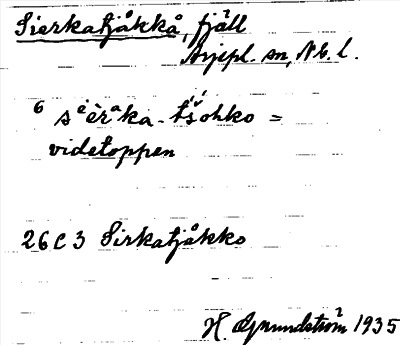 Sierkatjåkkå, fjäll
Arjepl. sn, Nb. l.
6 sⁱeèrᵃka-tš́ohko =
videtoppen
26 C 3 Sirkatjåkko
H. Grundström 1935